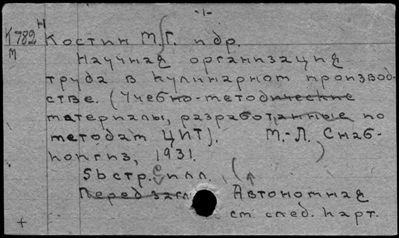 -1-
Н
К782 Костин М.Г. и др.
М
Научная организация
труда в кулинарном производ-
стве. (Учебно-методические
материалы, разработанные по
методам ЦИТ). М.-Л. Снаб-
коогиз, 1931.
56 стр. с илл.
Перед загл. Автономная
см. след. карт.
+